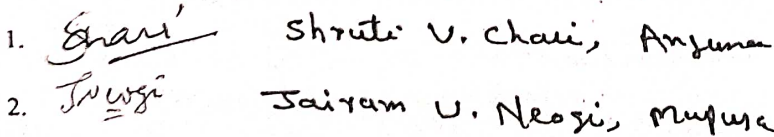 1. Shari Shruti V. Chari, Anjuna
2. JNeogi Jairam U. Neogi, Mapusa